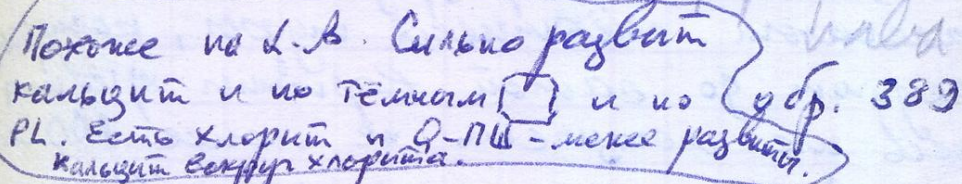 Похоже на L.A. Сильно развит
кальцит и по тёмным и по обр. 389
PL. Есть хлорит и Q-ПШ - менее развиты.
Кальцит вокруг хлорита.